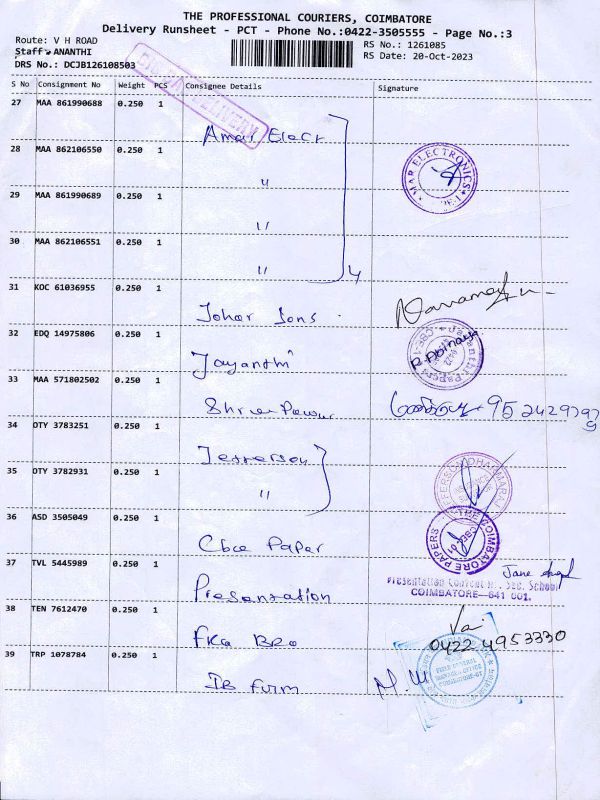 THE PROFESSIONAL COURIERS, COIMBATORE
Delivery Runsheet - PCT - Phone No.:0422-3505555 - Page No.:3
Route: V H ROAD RS No.: 1261085
Staff: ANANTHI RS Date: 20-Oct-2023
DRS No.: DCJB126108503
S No Consignment No Weight PCS Consignee Details Signature
27 MAA 861990688 0.250 1
Amar Elect
28 MAA 862106550 0.250 1
"
MAR ELECTRONICS
29 MAA 861990689 0.250 1
"
30 MAA 862106551 0.250 1
" 4
31 KOC 61036955 0.250 1
Johar Sons
32 EDQ 14975806 0.250 1
Jayanthi
Jayanthi Papers
R. Abinaya
33 MAA 571802502 0.250 1
34 OTY 3783251 0.250 1
35 OTY 3782931 0.250 1
"
36 ASD 3505049 0.250 1
Cbe Paper
THE COIMBATORE PAPERS
37 TVL 5445989 0.250 1
Presentation
Presentation Convent
COIMBATORE—641 001.
38 TEN 7612470 0.250 1
0422 4953330
39 TRP 1078784 0.250 1